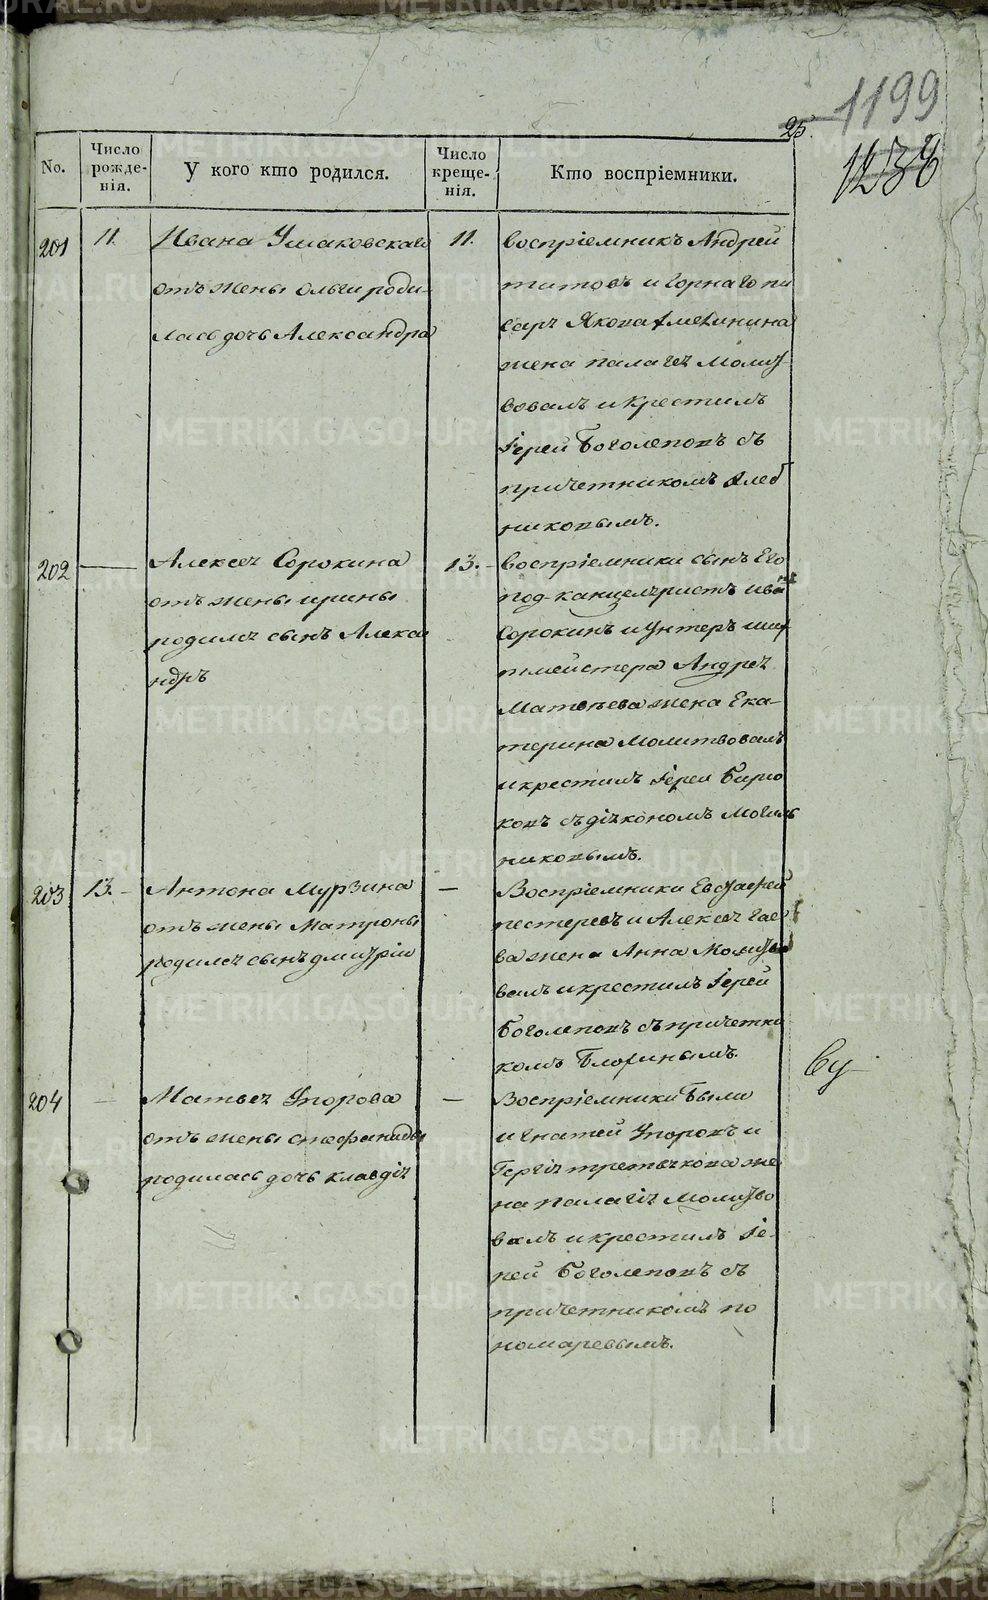 1199
25.
1238
No.
Число рожденія.
У кого кто родился.
Число крещенія.
Кто воспріемники.
201
11.
Ивана Ушаковскаго
отъ жены ольги роди-
лась дочь Александра
11.
воспріемникъ Андрей
титовъ и горнаго пи
саря Якова
жена палагея Молит-
вовалъ и крестилъ
Іерей Боголеповъ съ
причетникомъ хлеб
никовымъ.
202
Алексея Сорокина
отъ жены ирины
родился сынъ Алекса
ндръ
13.
воспріемники сынъ Его
под-канцеляристъ иванъ
Сорокинъ и унтеръ ших
тмейстера Андрея
Матвѣева жена Ека-
терина Молитвовалъ
и крестилъ Іерей Бирю
ковъ съ діякономъ Мочаль
никовымъ.
203
13.
Антона Мурзина
отъ жены Матроны
родился сынъ дмитрій
Воспріемники Евстафей
пестеревъ и Алексея
ва жена Анна Молитво
валъ и крестилъ Іерей
Боголеповъ съ причетни
комъ
204
Матвея Упорова
отъ жены стефаниды
родилась дочь клавдія
Воспріемники были
игнатей Упоровъ и
третьякова же
на палагія Молитво
валъ и крестилъ Іе-
рей Боголеповъ съ
причетникомъ по
номаревымъ.
METRIKI.GASO-URAL.RU